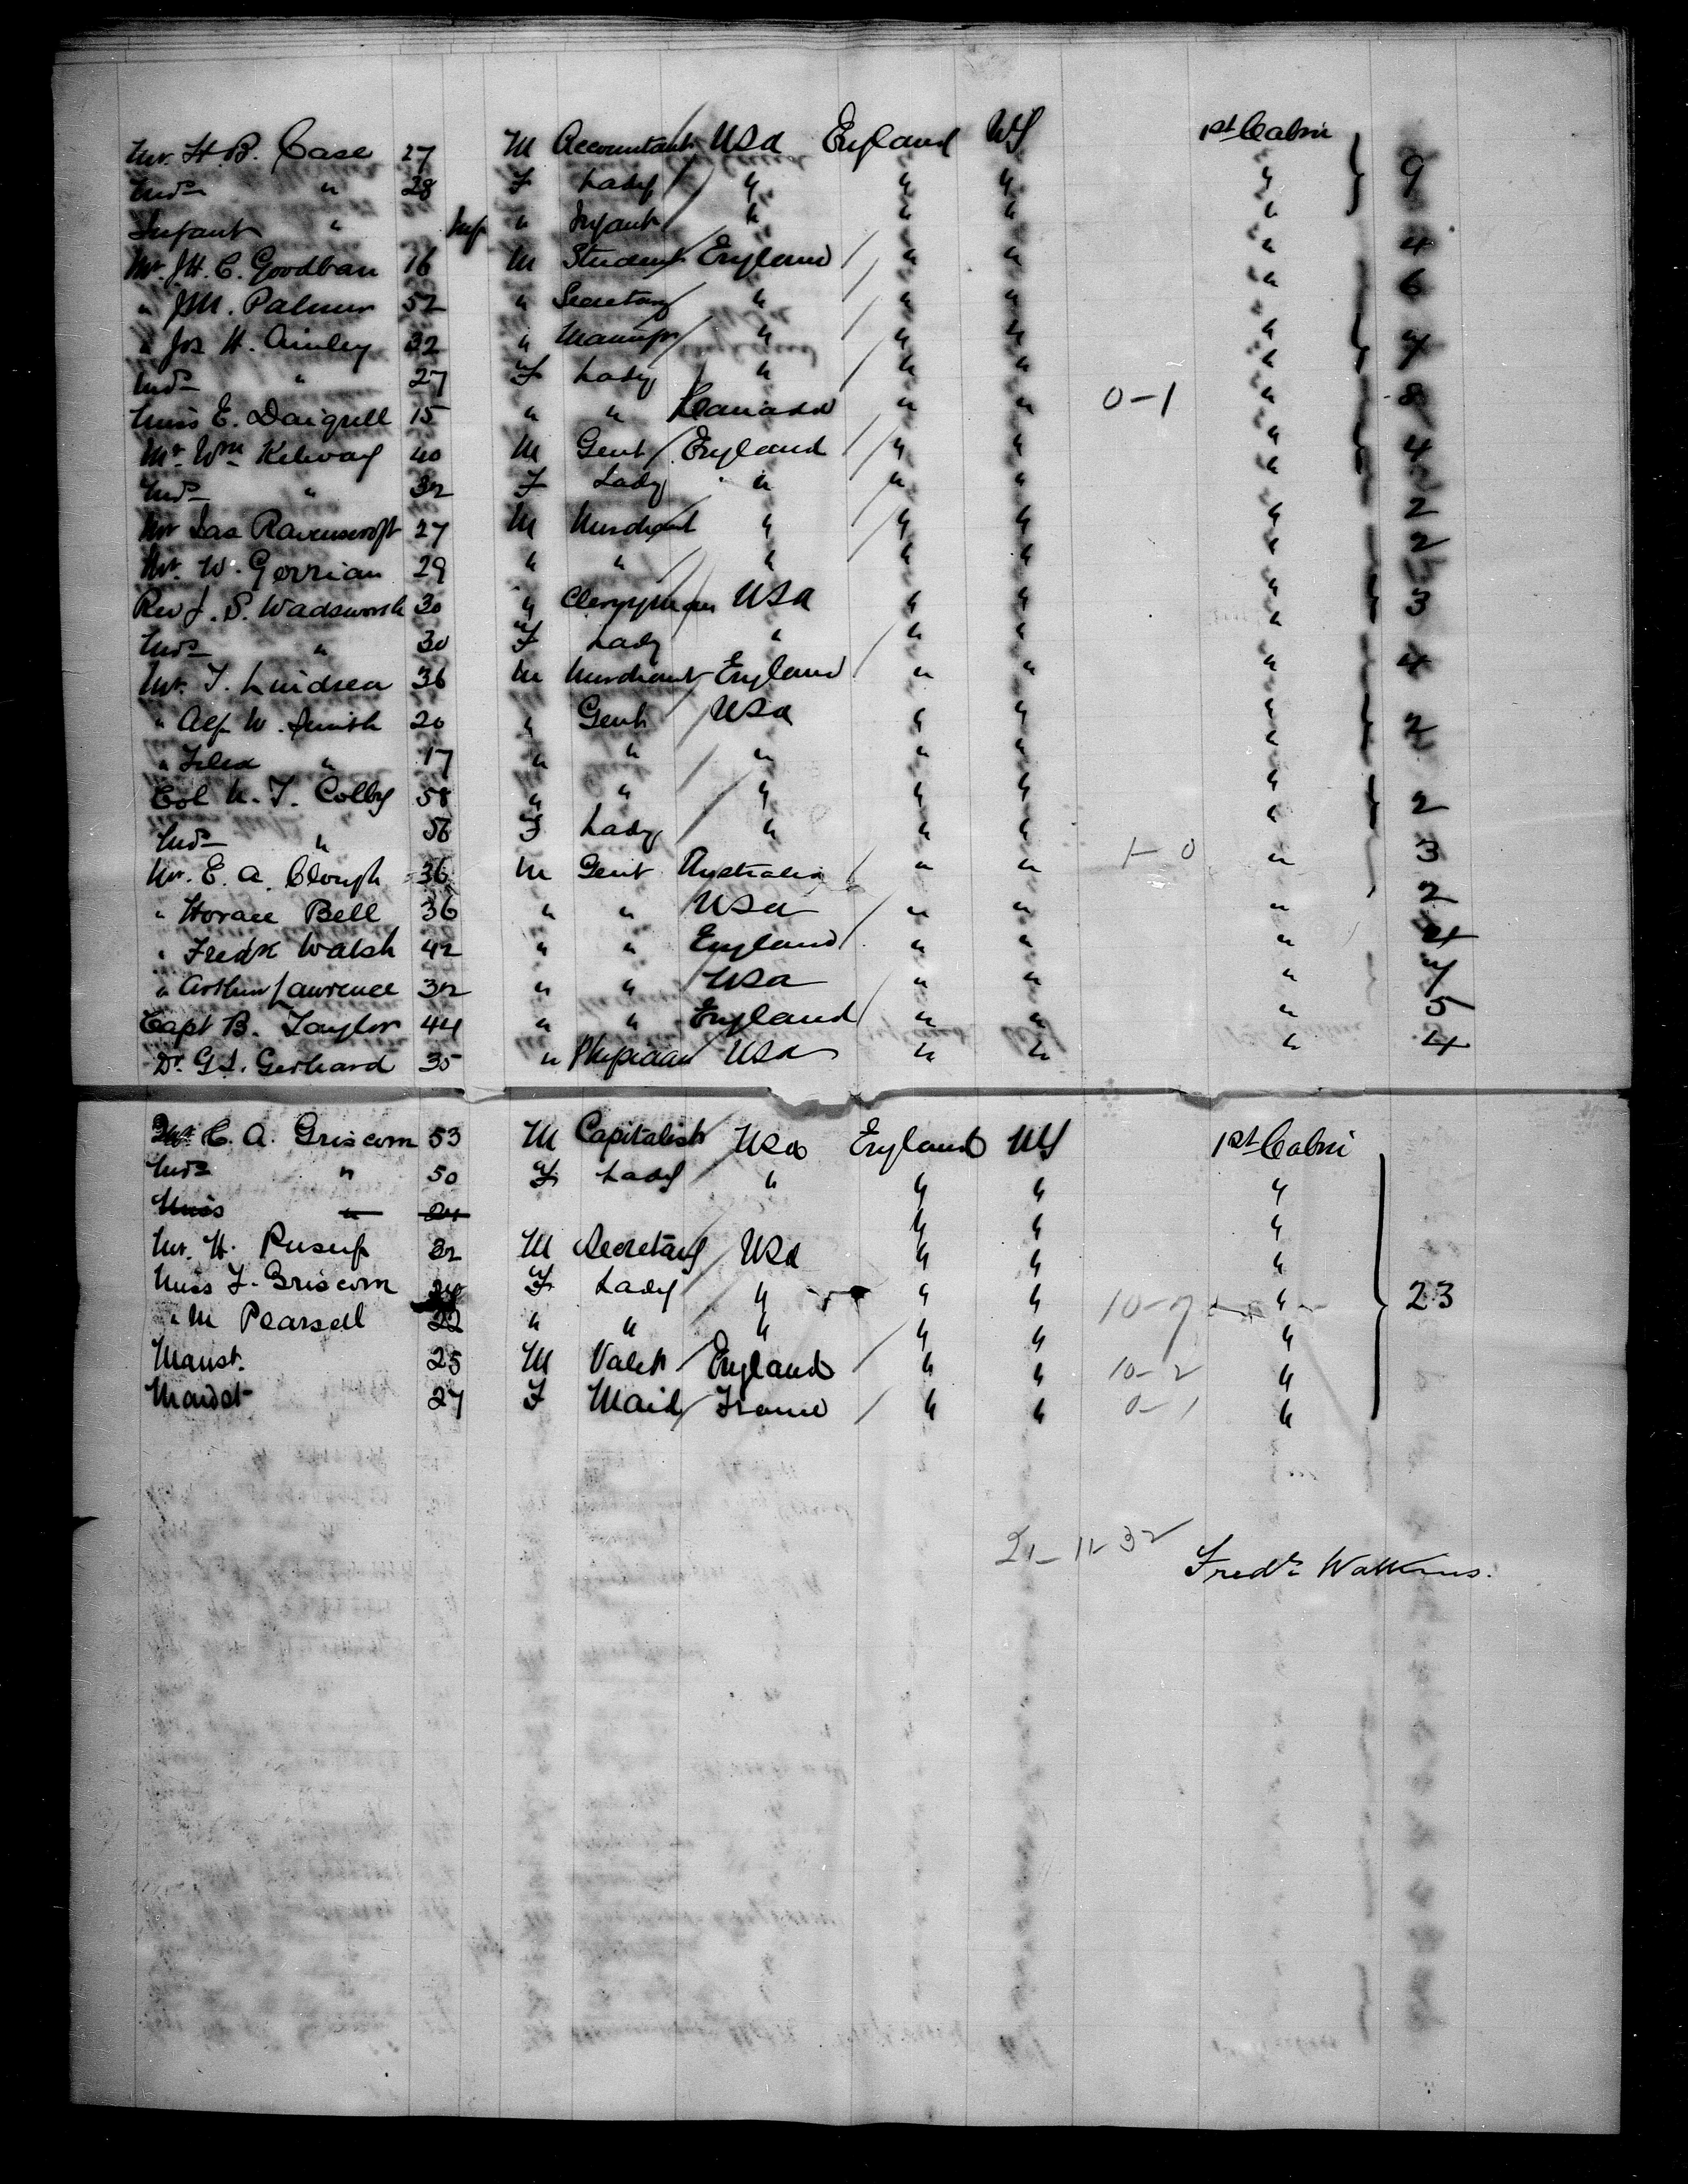 Mr. H. B. Case 27 M Accountant USA England NY 1st Cabin
Mrs " 28 F Lady " " " " 9
Infant " Inf " Infant " " " "
Mr. J. H. C. Goodban 16 M Student England " " " 4
" J M. Palmer 52 " Secretary " " " " 6
" Jos H. Ainley 32 " Manufr " " " " 7
Mrs " 27 F Lady " " " "
Miss E. Daigrell 15 " " Canada " " 0-1 " 8
Mr. Wm Kelway 40 M Gent England " " " 4
Mrs " 32 F Lady " " " "
Mr Jas Ravenscroft 27 M Merchant " " " " 2
Mr. W. Gerrian 29 " " " " " " 2
Rev J. S. Wadsworth 30 " Clergyman USA " " " 3
Mrs " 30 F Lady " " " "
Mr. T. Lindsea 36 M Merchant England " " " 4
" Alf. W. Smith 20 " Gent USA " " " 2
" " 17 " " " " " "
Col N. T. Colby 58 " " " " " " 2
Mrs " 56 F Lady " " " "
Mr. E. A. Clough 36 M Gent Australia " " 1-0 " 3
" Horace Bell 36 " " USA " " " 2
" Fredk Walsh 42 " " England " " " 4
" Arthur Lawrence 32 " " USA " " " 7
Capt B. Taylor 44 " " England " " " 5
Dr. G S. Gerhard 35 " Physician USA " " " 4
Mr C. A. Griscom 53 M Capitalist USA England NY 1st Cabin
Mrs " 50 F Lady " " " "
Miss " 24 " " "
Mr. H. Pusup 32 M Secretary USA " " "
Miss F. Griscom 24 F Lady " " " 10-7 " 23
" M Pearsall 22 " " " " " "
Manst. 25 M Valet England " " 10-2 "
Maidst 27 F Maid France " " 0-1 "
21-11-32
Fredk Watkins.